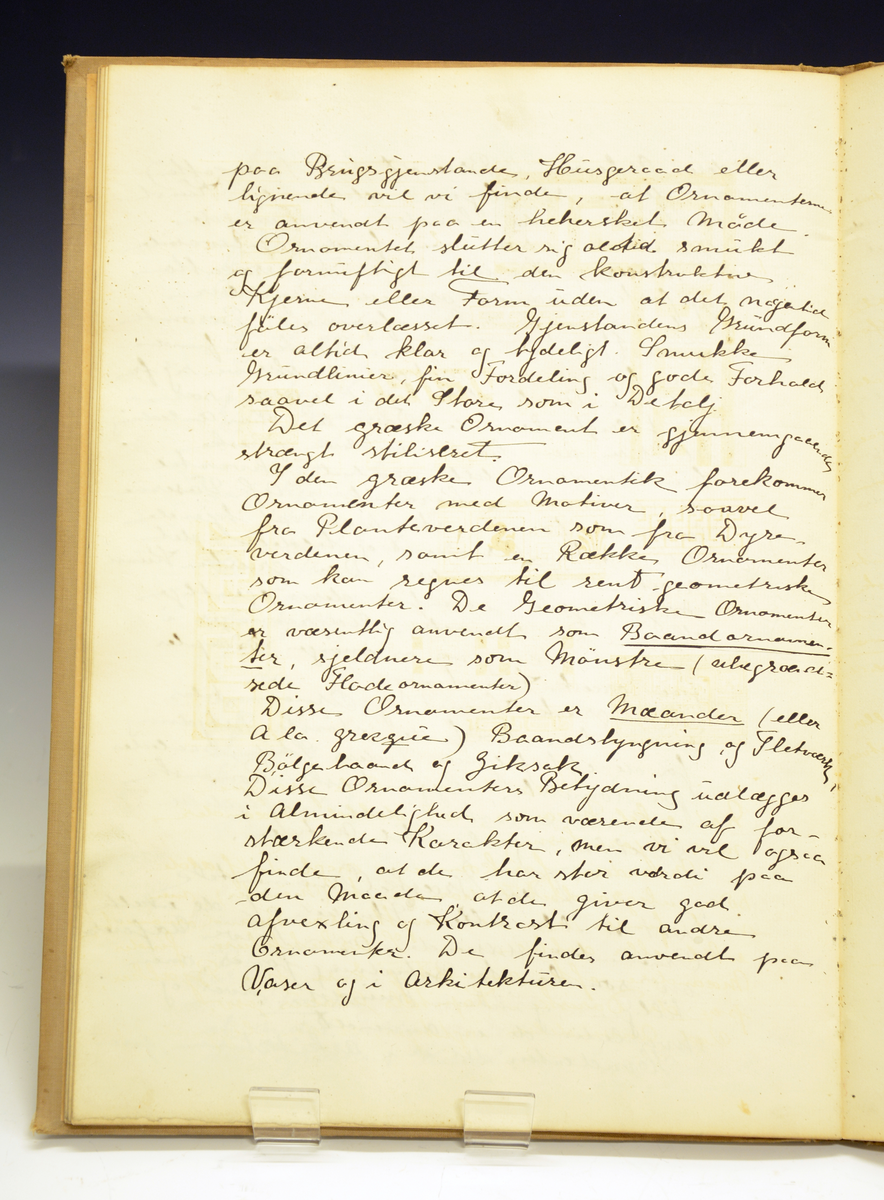 paa Brugsgjenstande, Husgeraad eller
lignende vil vi finde, at Ornamenterne
er anvendt paa en behersket Måde.
Ornamentet slutter sig altid smukt
og fornuftigt til den konstruktive
Kjerne eller Form uden at det nogentid
föles overlæsset. Gjenstandens Grundform
er altid klar og tydeligt. Smukke
Grundlinier, fin Fordeling og gode Forhold
saavel i det Store som i Detalj.
Det græske Ornament er gjennemgaaende
strængt stiliseret.
I den græske Ornamentik forekommer
Ornamenter med Motiver, saavel
fra Planteverdenen som fra Dyre-
verdenen, samt en Række Ornamenter
som kan regnes til rent geometriske
Ornamenter. De Geometriske Ornamenter
er væsentlig anvendt som Baandornamen-
ter, sjeldnere som Mönstre (ubegrænd=
sede Fladeornamenter)
Disse Ornamenter er Mæander (eller
A la grecque) Baandslyngning og Fletværk,
Bölgebaand og Ziksak
Disse Ornamenters Betydning udlægges
i Almindelighed som værende af for-
stærkende Karakter, men vi vil ogsaa
finde, at de har stor værdi paa
den Maade at de giver god
afvexling og Kontrast til andre
Ornamenter. De findes anvendt paa
Vaser og i Arkitekturen.